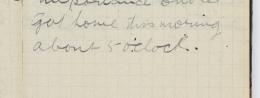 importance
got home this morning
about 5 o'clock.